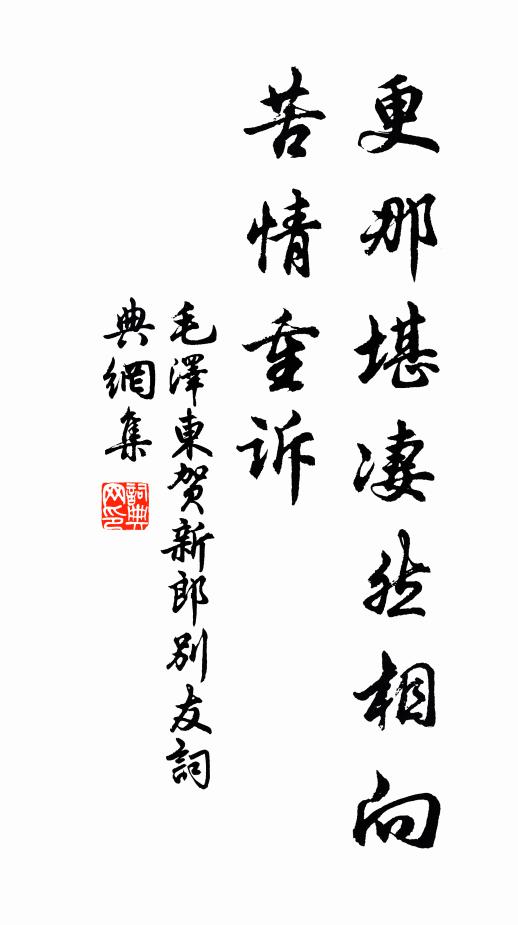 更那堪凄然相向
苦情重诉
毛澤東賀新郎别友詞
典網集
詞典
网印